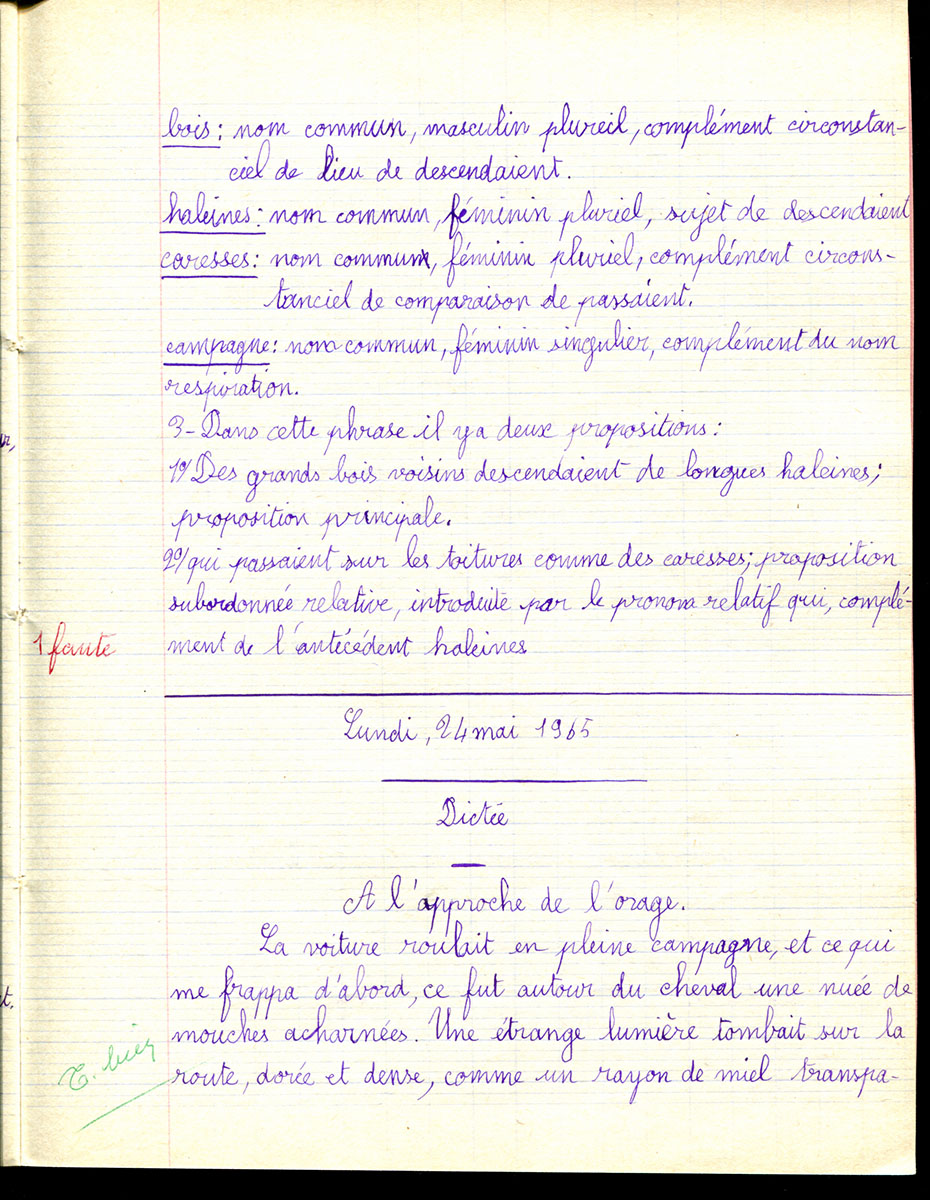 bois : nom commun, masculin pluriel, complément circonstan-
ciel de lieu de descendaient.
haleines : nom commun, féminin pluriel, sujet de descendaient
caresses : nom commun, féminin pluriel, complément circons-
tanciel de comparaison de passaient.
campagne : nom commun, féminin singulier, complément du nom
respiration.
3- Dans cette phrase il y a deux propositions :
1°/ Des grands bois voisins descendaient de longues haleines ;
proposition principale.
2°/ qui passaient sur les toitures comme des caresses ; proposition
subordonnée relative, introduite par le pronom relatif qui, complé-
1 faute
ment de l'antécédent haleines
Lundi, 24 mai 1965
Dictée
A l'approche de l'orage.
La voiture roulait en pleine campagne, et ce qui
me frappa d'abord, ce fut autour du cheval une nuée de
mouches acharnées. Une étrange lumière tombait sur la
T. bien
route, dorée et dense, comme un rayon de miel transpa-